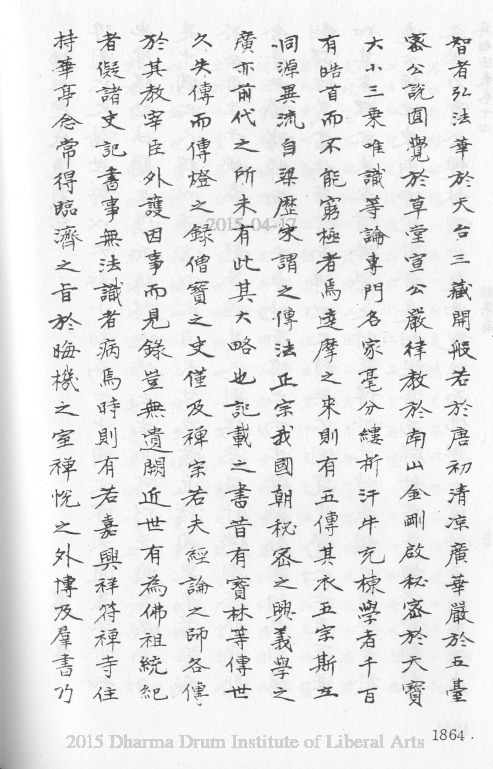 智者弘法華於天台三藏開般若於唐初清凉廣華嚴於五臺
密公說圓覺於草堂宣公嚴律教於南山金剛啟秘密於天寶
大小三乘唯識等論專門名家毫分縷析汗牛充棟學者千百
有皓首而不能窮極者焉達摩之來則有五傳其衣五宗斯立
同源異流自梁歷宋謂之傳法正宗我國朝秘密之興義學之
廣亦前代之所未有此其大略也記載之書昔有寶林等傳世
久失傳而傳燈之錄僧寶之史僅及禪宗若夫經論之師各傳
於其教宰臣外護因事而見錄豈無遺闕近世有為佛祖統紀
者儗諸史記書事無法識者病焉時則有若嘉興祥符禪寺住
持華亭念常得臨濟之旨於晦機之室禪悅之外博及羣書乃
2015-04-17
1864.
2015 Dharma Drum Institute of Liberal Arts